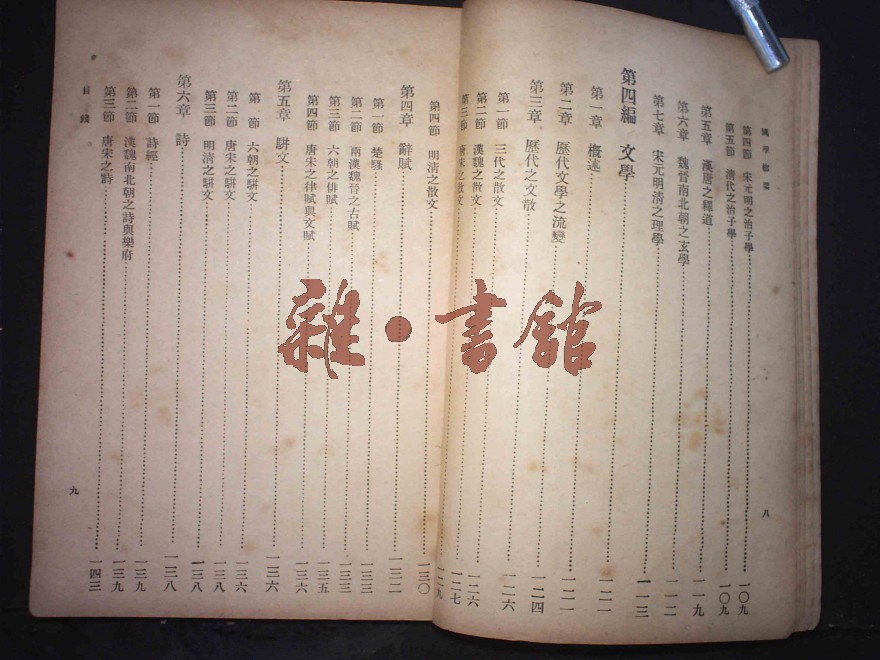 國學概要
第四節 宋元明之治子學……一〇九
第五節 清代之治子學……一〇九
第五章 漢唐之釋道……一一九
第六章 魏晉南北朝之玄學……一一二
第七章 宋元明清之理學……一一三
第四編 文學……一二一
第一章 概述……一二一
第二章 歷代文學之流變……一二四
第三章 歷代之文散……一二六
第一節 三代之散文……一二六
第二節 漢魏之散文……一二七
第三節 唐宋之散文……一二九
八
第四節 明清之散文……一三〇
第四章 辭賦……一三二
第一節 楚騷……一三三
第二節 兩漢魏晉之古賦……一三三
第三節 六朝之俳賦……一三五
第四節 唐宋之律賦與文賦……一三六
第五章 駢文……一三六
第一節 六朝之駢文……一三六
第二節 唐宋之駢文……一三八
第三節 明清之駢文……一三八
第六章 詩……一三八
第一節 詩經……一三九
第二節 漢魏南北朝之詩與樂府……一三九
第三節 唐宋之詩……一四三
目錄
九
雜·書館